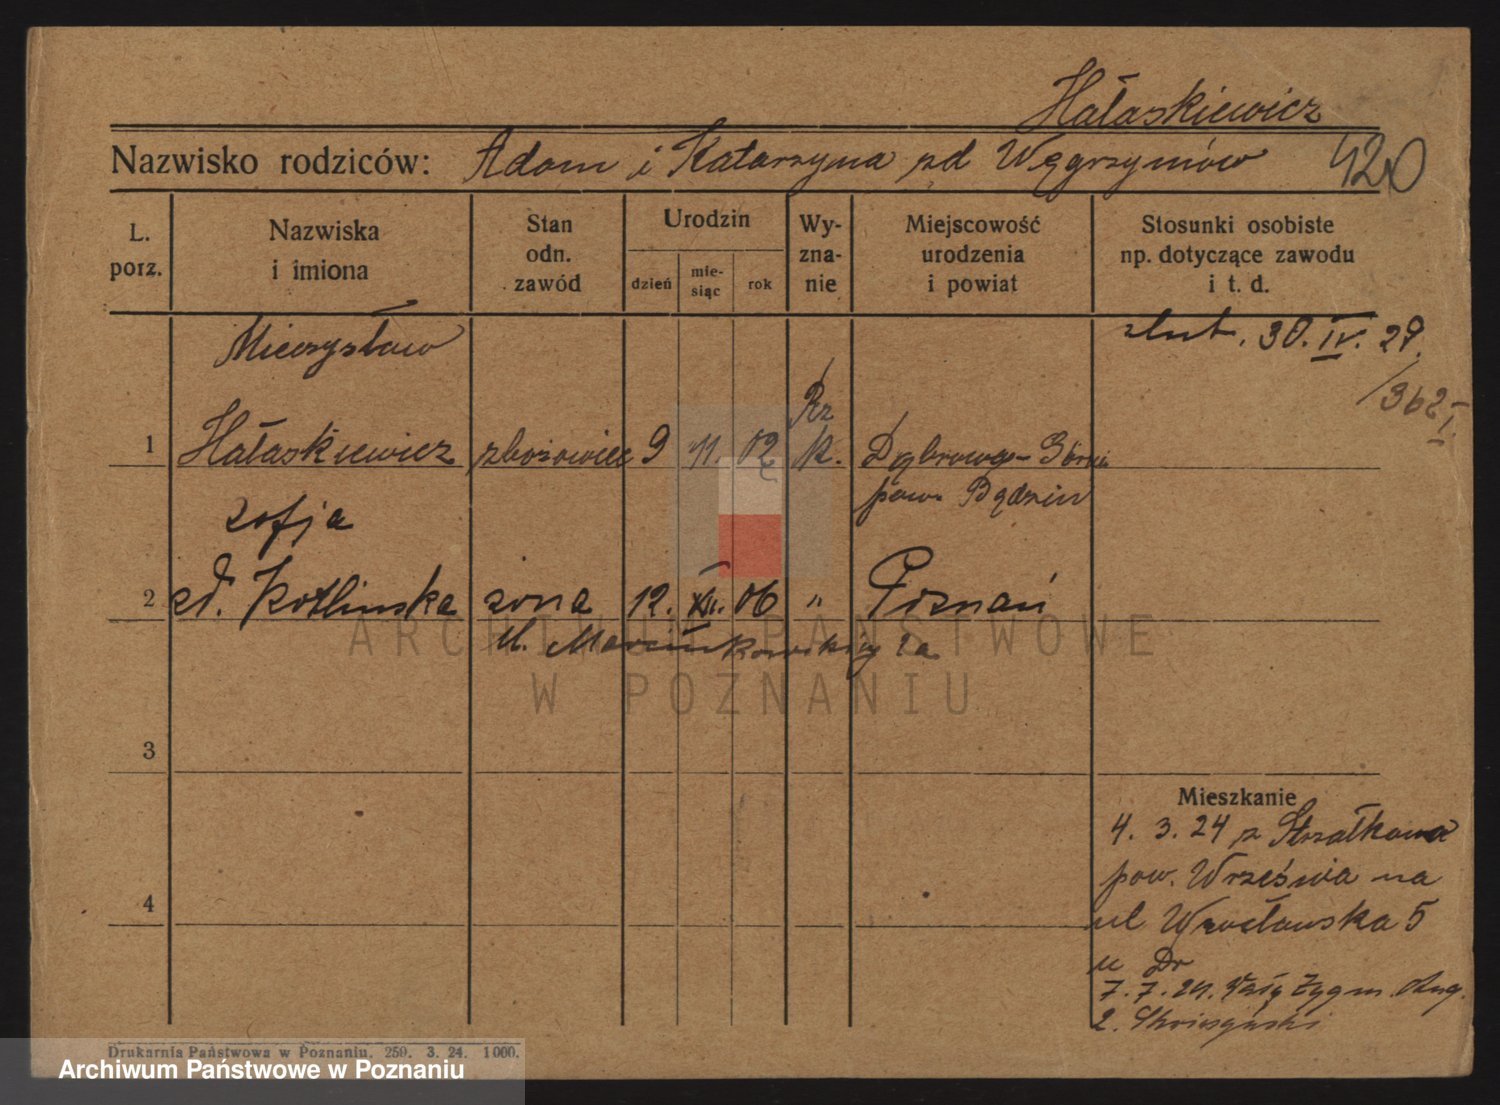 Hałaskiewicz
Nazwisko rodziców: Adam i Katarzyna zd Węgrzynów 420
L. porz.
Nazwiska i imiona
Stan odn. zawód
Urodzin
dzień mie-siąc rok
Wy-zna-nie
Miejscowość urodzenia i powiat
Stosunki osobiste np. dotyczące zawodu i t. d.
Mieczysław
ślub. 30. IV. 29.
/362 I.
Rz
1 Hałaskiewicz zbożowiec 9 11. 02 k. Dąbrowa-Górn
pow. Będzin
Zofja
2 zd. Kotlinska żona 12. XII. 06 " Poznań
Ul. Marcinkowskieg 2a
3
Mieszkanie
4. 3. 24 z Strzałkowa
pow. Września na
4
ul Wrocławska 5
u Dr
7. 7. 24. Zygm. Aug.
2.
Drukarnia Państwowa w Poznaniu. 250. 3. 24. 1000.
ARCHIWUM PAŃSTWOWE
W POZNANIU
Archiwum Państwowe w Poznaniu